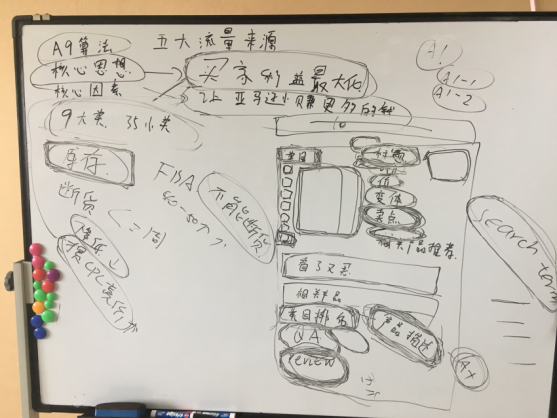 A9算法
五大流量来源
核心思想
买家利益最大化
核心因素
让亚马逊小赚更多的钱
9大类 35小类
A1
A1-1
A1-2
库存
FBA
断货
<=1周
40-50个
不能断货
降低↓
类目
标题
价
变体
卖点
相关产品推荐
看了又买
相关产品
类目排名
产品描述
QA
review
search term